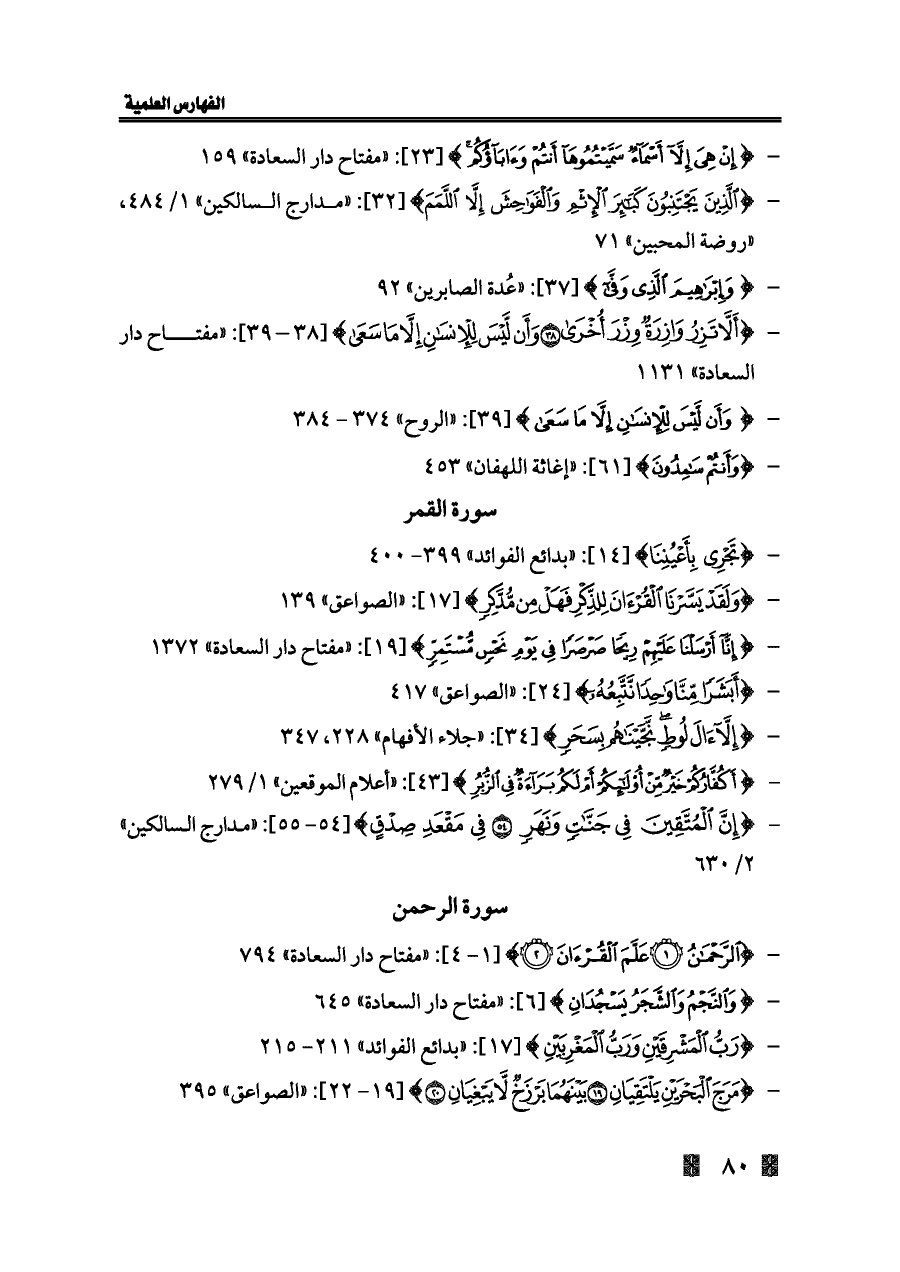 الفهارس العلمية
- ﴿ إِنْ هِيَ إِلَّآ أَسْمَآءٌ سَمَّيْتُمُوهَآ أَنتُمْ وَءَابَآؤُكُم ﴾ [٢٣]: «مفتاح دار السعادة» ١٥٩
- ﴿ٱلَّذِينَ يَجْتَنِبُونَ كَبَٰٓئِرَ ٱلْإِثْمِ وَٱلْفَوَٰحِشَ إِلَّا ٱللَّمَمَ﴾ [٣٢]: «مـدارج الـسـالكين» ١/ ٤٨٤،
«روضة المحبين» ٧١
- ﴿ وَإِبْرَٰهِيمَ ٱلَّذِى وَفَّىٰٓ ﴾ [٣٧]: «عُدة الصابرين» ٩٢
- ﴿أَلَّا تَزِرُ وَازِرَةٌ وِزْرَ أُخْرَىٰ ٣٨ وَأَن لَّيْسَ لِلْإِنسَٰنِ إِلَّا مَا سَعَىٰ﴾ [٣٨ – ٣٩]: «مفتـــاح دار
السعادة» ١١٣١
- ﴿ وَأَن لَّيْسَ لِلْإِنسَٰنِ إِلَّا مَا سَعَىٰ ﴾ [٣٩]: «الروح» ٣٧٤ – ٣٨٤
- ﴿وَأَنتُمْ سَٰمِدُونَ﴾ [٦١]: «إغاثة اللهفان» ٤٥٣
سورة القمر
- ﴿تَجْرِى بِأَعْيُنِنَا﴾ [١٤]: «بدائع الفوائد» ٣٩٩– ٤٠٠
- ﴿وَلَقَدْ يَسَّرْنَا ٱلْقُرْءَانَ لِلذِّكْرِ فَهَلْ مِن مُّدَّكِرٍ﴾ [١٧]: «الصواعق» ١٣٩
- ﴿ إِنَّآ أَرْسَلْنَا عَلَيْهِمْ رِيحًا صَرْصَرًا فِى يَوْمِ نَحْسٍ مُّسْتَمِرٍّ ﴾ [١٩]: «مفتاح دار السعادة» ١٣٧٢
- ﴿أَبَشَرًا مِّنَّا وَٰحِدًا نَّتَّبِعُهُۥٓ﴾ [٢٤]: «الصواعق» ٤١٧
- ﴿إِلَّآ ءَالَ لُوطٍ ۖ نَّجَّيْنَٰهُم بِسَحَرٍ ﴾ [٣٤]: «جلاء الأفهام» ٢٢٨، ٣٤٧
- ﴿ أَكُفَّارُكُمْ خَيْرٌ مِّنْ أُو۟لَٰٓئِكُمْ أَمْ لَكُم بَرَآءَةٌ فِى ٱلزُّبُرِ ﴾ [٤٣]: «أعلام الموقعين» ١/ ٢٧٩
- ﴿ إِنَّ ٱلْمُتَّقِينَ فِى جَنَّٰتٍ وَنَهَرٍ ٥٤ فِى مَقْعَدِ صِدْقٍ﴾ [٥٤– ٥٥]: «مـدارج السالكين»
٢/ ٦٣٠
سورة الرحمن
- ﴿ٱلرَّحْمَٰنُ ١ عَلَّمَ ٱلْقُرْءَانَ ٢﴾ [١– ٤]: «مفتاح دار السعادة» ٧٩٤
- ﴿ وَٱلنَّجْمُ وَٱلشَّجَرُ يَسْجُدَانِ ﴾ [٦]: «مفتاح دار السعادة» ٦٤٥
- ﴿رَبُّ ٱلْمَشْرِقَيْنِ وَرَبُّ ٱلْمَغْرِبَيْنِ ﴾ [١٧]: «بدائع الفوائد» ٢١١– ٢١٥
- ﴿مَرَجَ ٱلْبَحْرَيْنِ يَلْتَقِيَانِ ١٩ بَيْنَهُمَا بَرْزَخٌ لَّا يَبْغِيَانِ ٢٠﴾ [١٩– ٢٢]: «الصواعق» ٣٩٥
٨٠